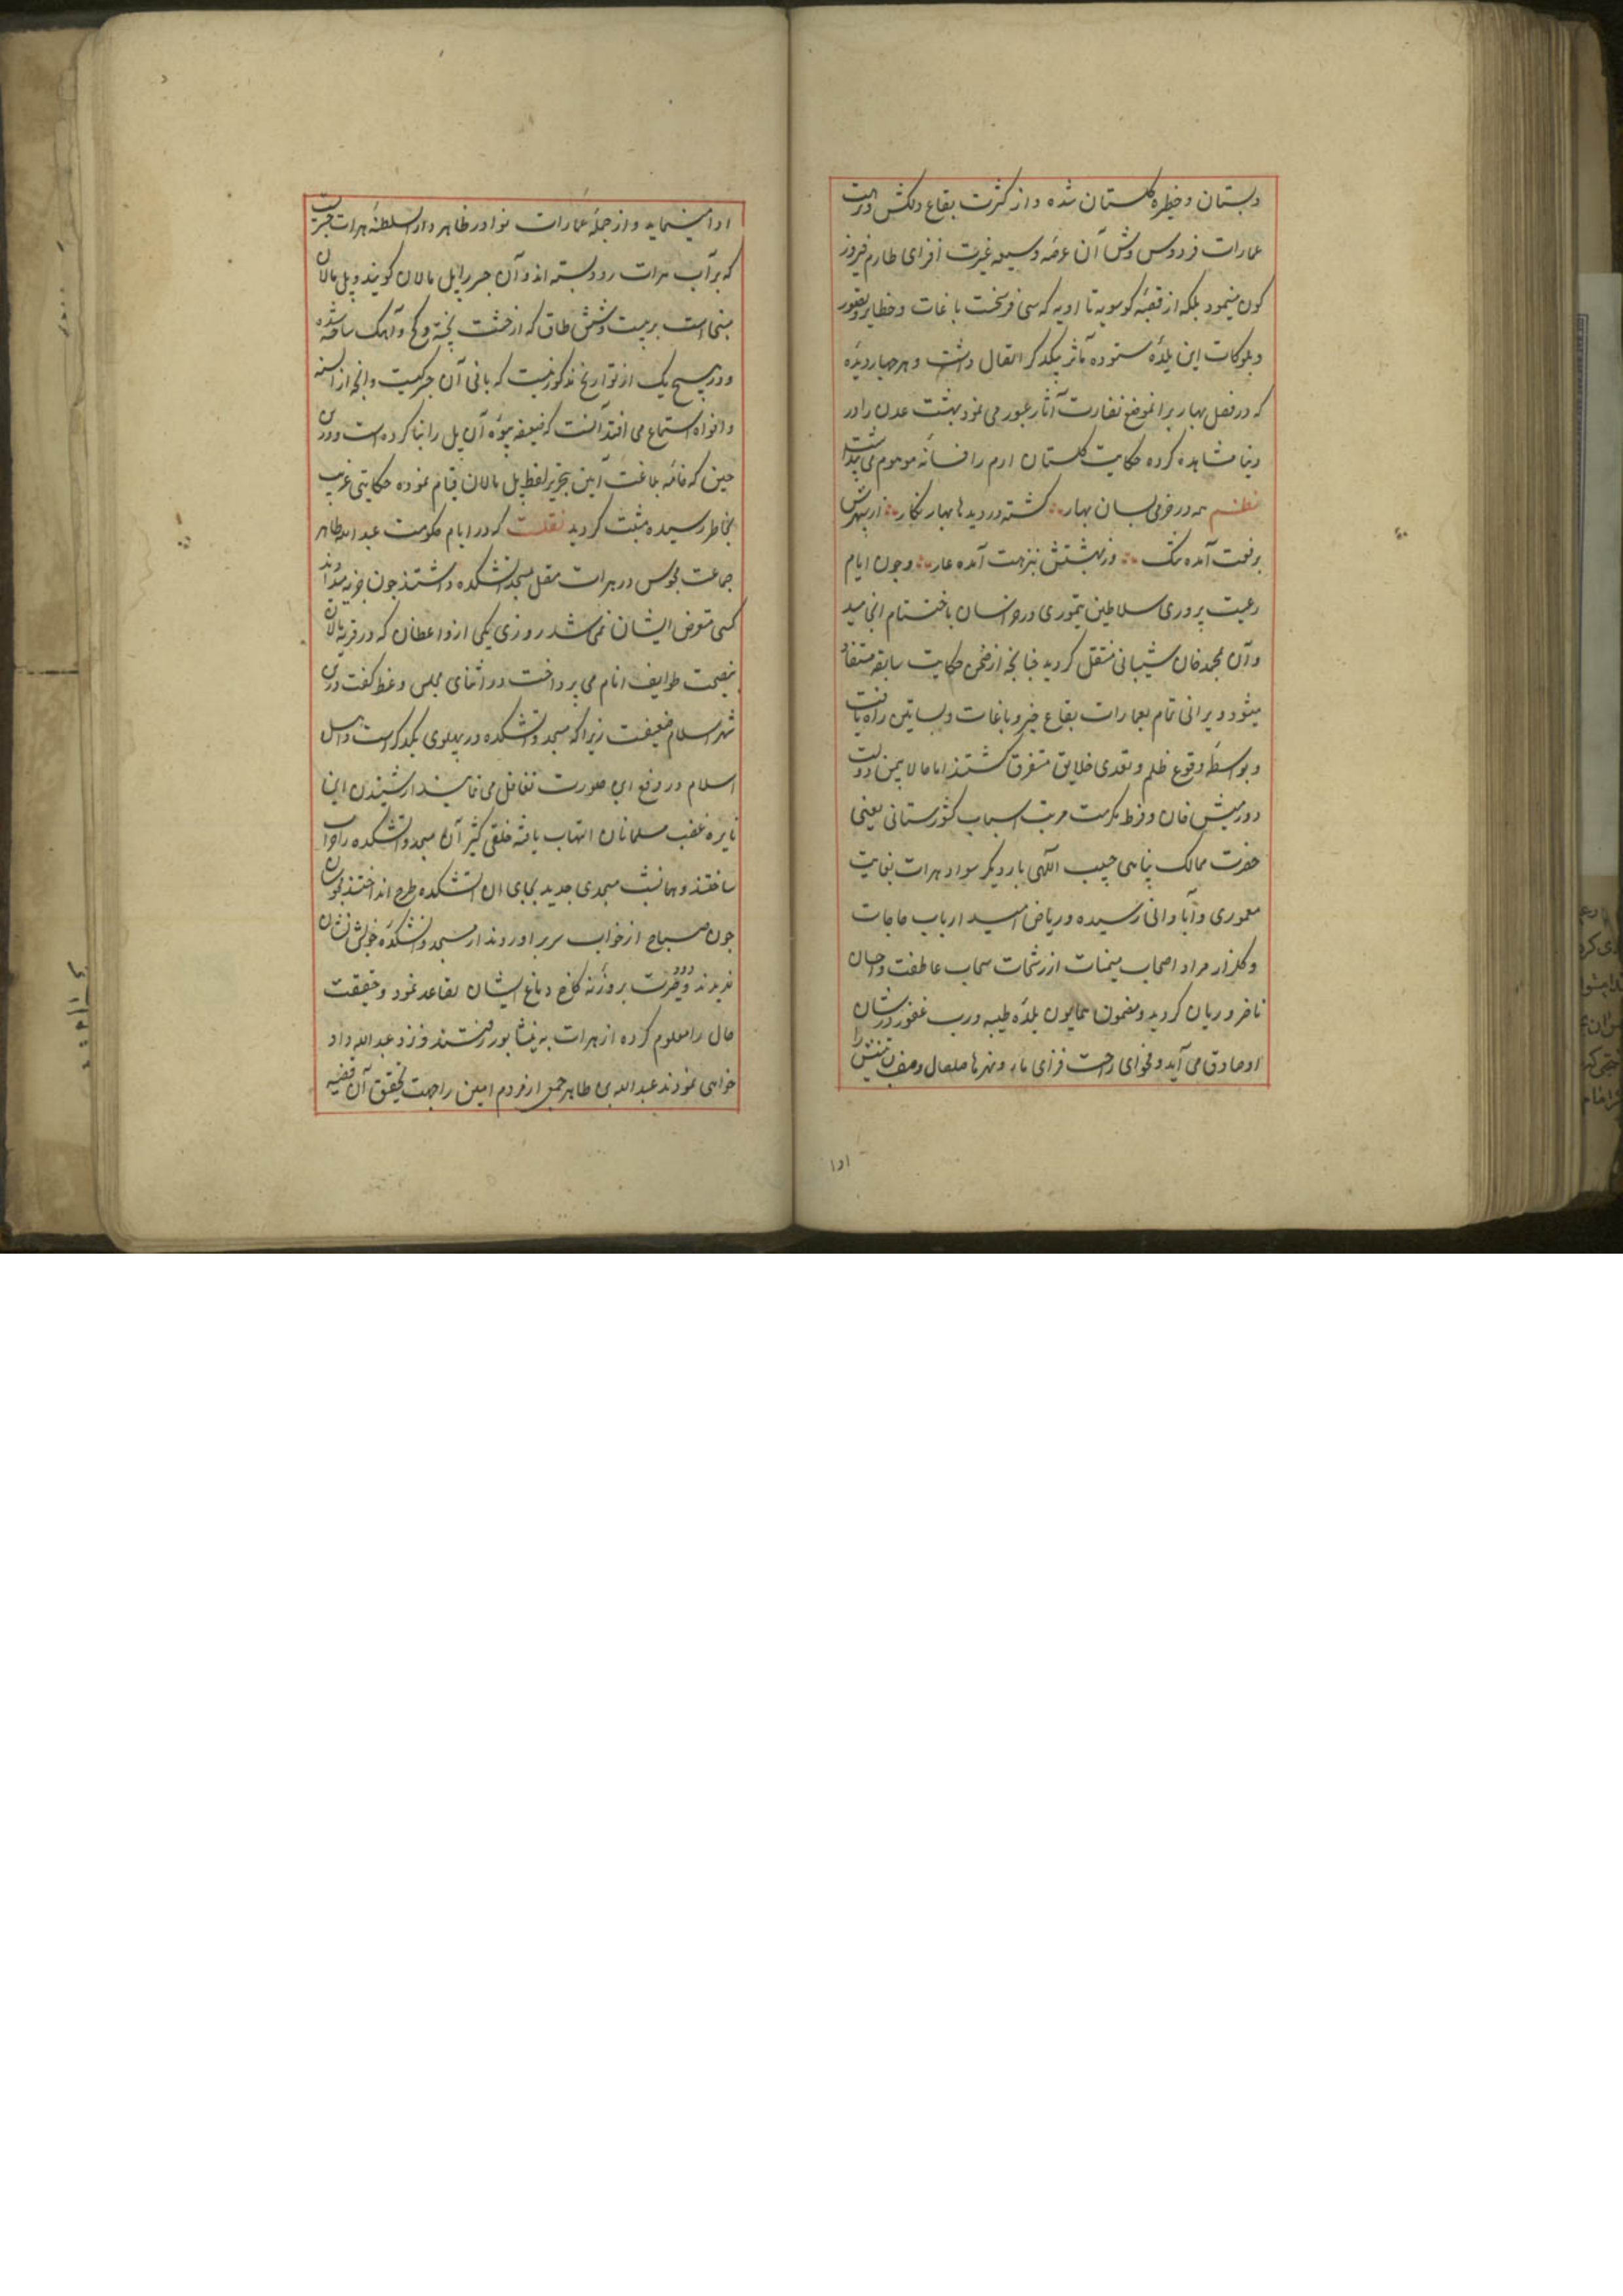 و بستان و حظیره گلستان شده و از کثرت بقاع دلکش و
عمارات فردوس وش آن عرصه وسیعه غیرت افزای طارم فیروزه
کون مینمود بلکه از قصبه کوسویه تا اوبه که سی فرسخت باغات و حظایر و قصور
و بلوکات این بلده ستوده مآثر بیکدکر اتصال داشت و هر صاحب دیده
که در فصل بهار بر آنموضع نضارت آثار عبور می نمود بهشت عدن را در
دنیا مشاهده کرده حکایت کلستان ارم را فسانه موهوم می پنداشت
نظم همه در خرمی بسان بهار کشته در دیدها بهار نکار از سپهرش
برفعت آمده ننک وز بهشتش بنزهت آمده عار و چون ایام
رعیت پروری سلاطین تیموری در خراسان باختتام انجامید
و آن بمحمد خان شیبانی منتقل کردید چنانچه از ضمن حکایت سابقه مستفاد
میشود ویرانی تمام بعمارات بقاع خیر و باغات و بساتین راه یافت
و بواسطه وقوع ظلم و تعدی خلایق متفرق کشتند اما حالا بیمن دولت
دورمیش خان و فرط مکرمت مرتب اسباب کشورستانی یعنی
حضرت ممالک پناهی حبیب اللهی بار دیکر سواد هرات بغایت
معموری و آبادانی رسیده و ریاض امید ارباب حاجات
و کلزار مراد اصحاب میمنات از رشحات سحاب عاطفت و احسان
ناضر و ریان کردید و مضمون همایون بلدة طیبة و رب غفور در شان
او صادق می آید و فحوای راحت فزای ماء و نهرها سلسال وصف
ادا مینماید و از جمله عمارات نوادر ظاهر دار السلطنه هرات جسریست
که بر آب هرات رود بسته اند و آن جسر را پل مالان کویند و پل مالان
مبنی است بر بیست و شش طاق که از خشت پخته و کچ و آهک ساخته شده
و در هیچ یک از تواریخ مذکور نیست که بانی آن جسر کیست و آنچه از السنه
و افواه استماع می افتد آنست که ضعیفه بیوه آن پل را بنا کرده است و درین
حین که خامه بلاغت آیین بتحریر لفظ پل مالان قیام نموده حکایتی غریب
بخاطر رسیده مثبت کردید نقلست که در ایام حکومت عبد الله طاهر
جماعت مجوس در هرات متصل مسجد آتشکده داشتند چون جزیه میدادند
کسی متعرض ایشان نمی شد روزی یکی از واعظان که در قریه مالان
بنصیحت طوایف انام می پرداخت در اثنای مجلس وعظ کفت درین
شهر اسلام ضعیفست زیرا که مسجد و آتشکده در پهلوی یکدکر است و اهل
اسلام در رفع این صورت تغافل می نمایند از شنیدن این
نایره غضب مسلمانان التهاب یافته خلقی کثیر آن مسجد و آتشکده را خراب
ساختند و همانشب مسجدی جدید بجای ان آتشکده طرح انداختند مجوسان
چون صباح از خواب سر بر اوردند از مسجد و آتشکده خویش نشان
ندیدند دود حیرت بروزنه کاخ دماغ ایشان تصاعد نمود و حقیقت
حال را معلوم کرده از هرات به نیشابور رفتند و نزد عبد الله داد
خواهی نمودند عبد الله بن طاهر جمعی از مردم امین را جهت تحقیق آن قضیه